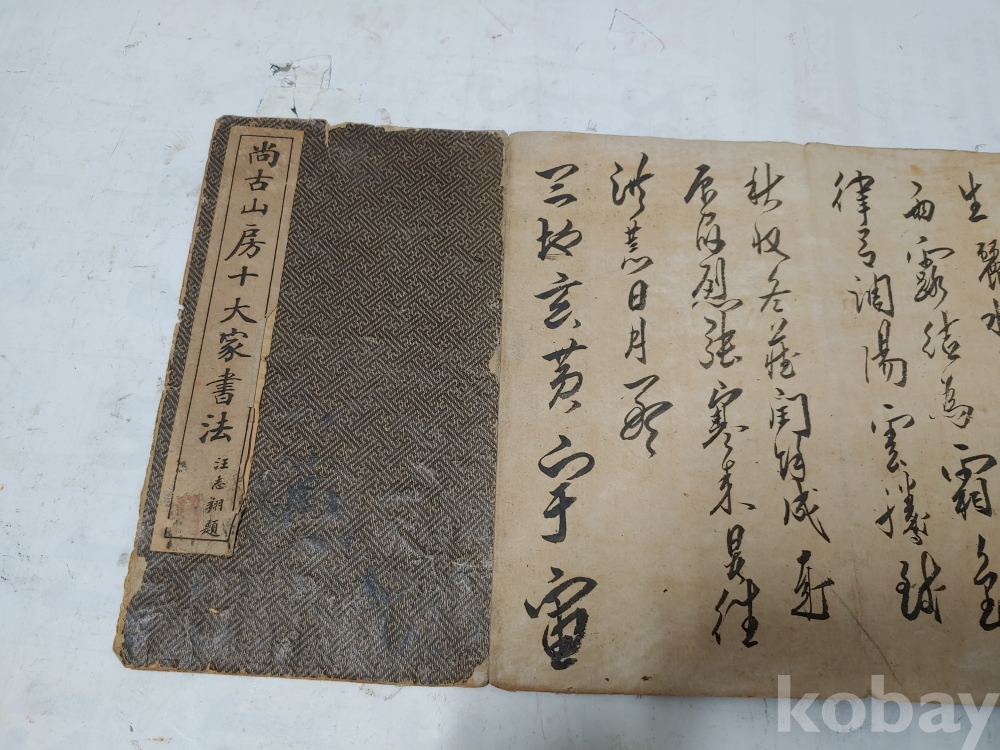 尚古山房十大家書法
汪志翔題
天地玄黃宇宙
洪荒日月盈
辰宿列張寒來暑往
秋收冬藏閏餘成歲
律呂調陽雲騰致
雨露結為霜金
生麗水
kobay